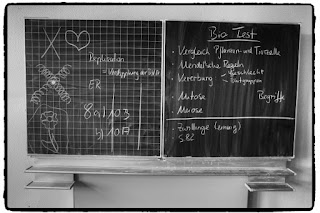 Replikation
= Verdopplung der DNA
ER
8a) 103
b) 107
Bio Test
• Vergleich Pflanzen- und Tierzelle
• Mendelsche Regeln
• Vererbung - Geschlecht
- Blutgruppen
• Mitose Begriffe
• Meiose
Zwillinge (eineiig)
S. 82